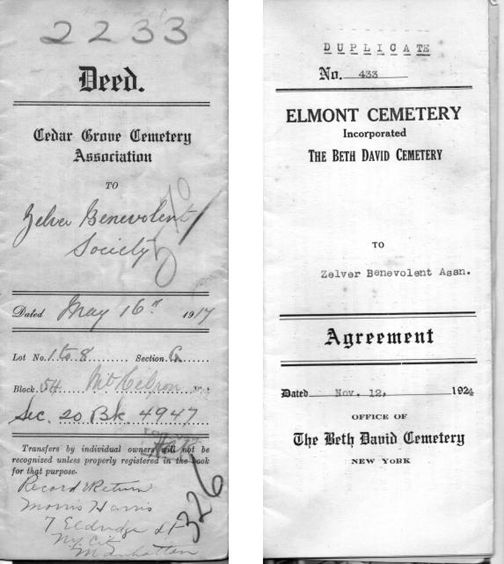 2233
Deed.
Cedar Grove Cemetery
Association
TO
Zelver Benevolent
Society
Dated May 16th 1917
Lot No. 1 to 8 Section 6
Block 54 Mt Hebron
Sec. 20 Bk. 4947
Transfers by individual owners will not be
recognized unless properly registered in the book
for that purpose.
Record & Return
Morris Harris
7 Eldridge St
NY City
Manhattan
326
DUPLICATE
No. 433
ELMONT CEMETERY
Incorporated
THE BETH DAVID CEMETERY
TO
Zelver Benevolent Assn.
Agreement
Dated Nov. 12, 1924
OFFICE OF
The Beth David Cemetery
NEW YORK